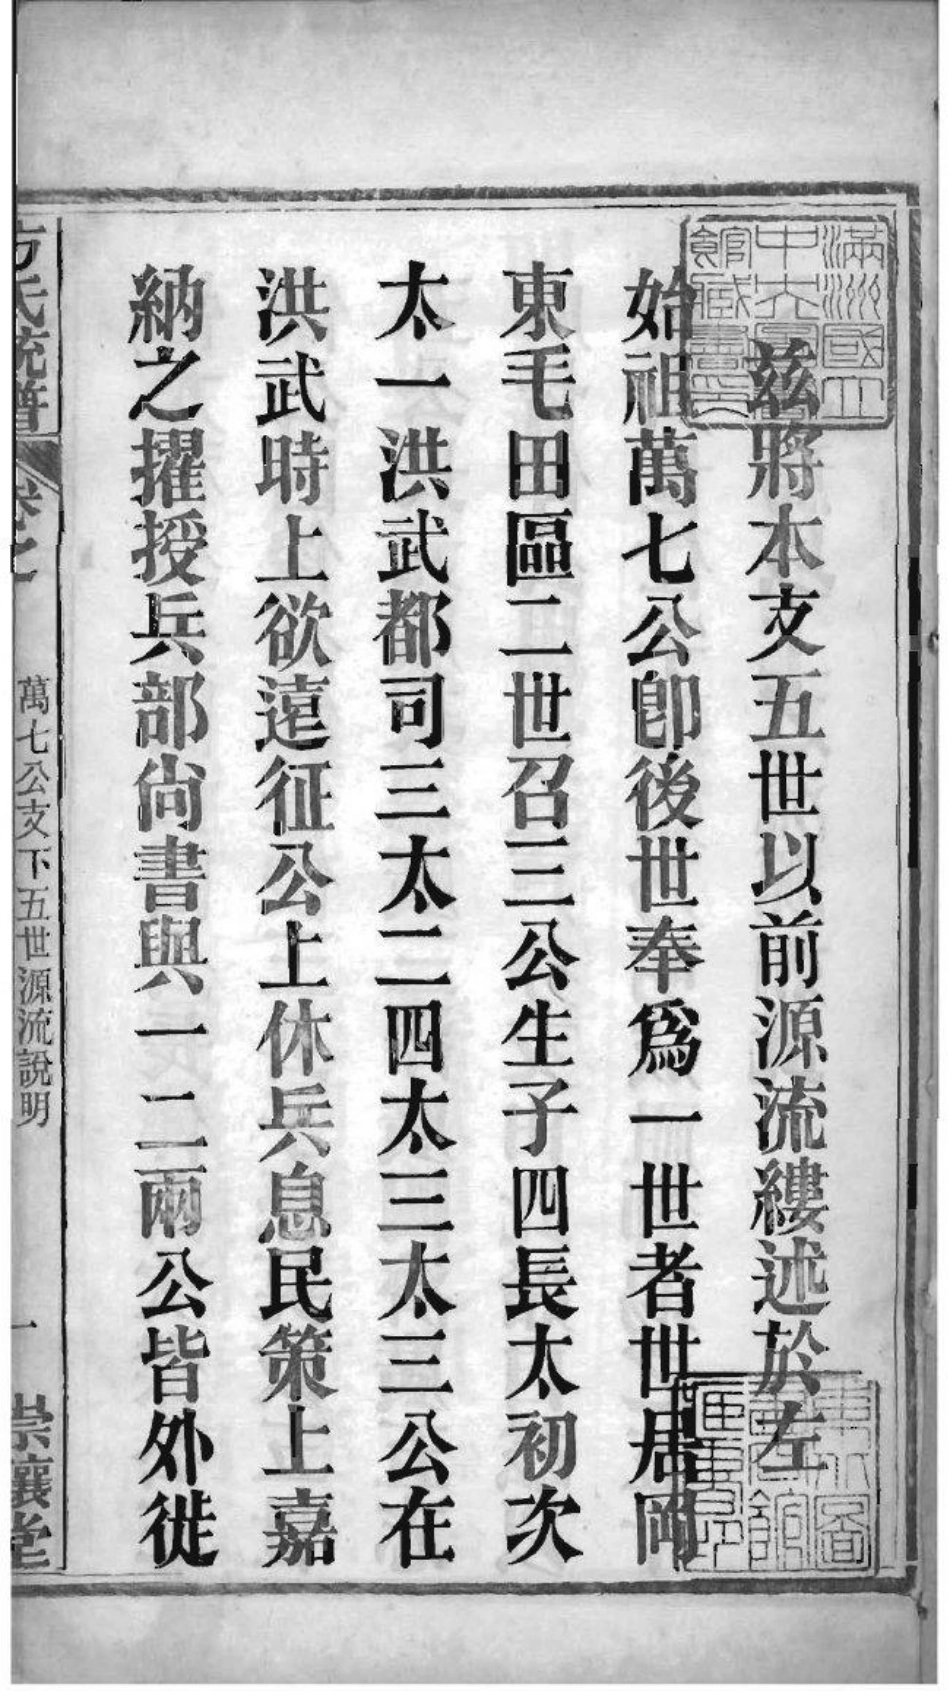 茲將本支五世以前源流縷述於左
始祖萬七公卽後世奉爲一世者世居岡
東毛田區二世召三公生子四長太初次
太一洪武都司三太二四太三太三公在
洪武時上欲遠征公上休兵息民策上嘉
納之擢授兵部尙書與一二兩公皆外徙
方氏統譜
卷之
萬七公支下五世源流說明
一
崇讓堂
滿洲國立
中央圖書
館藏書印